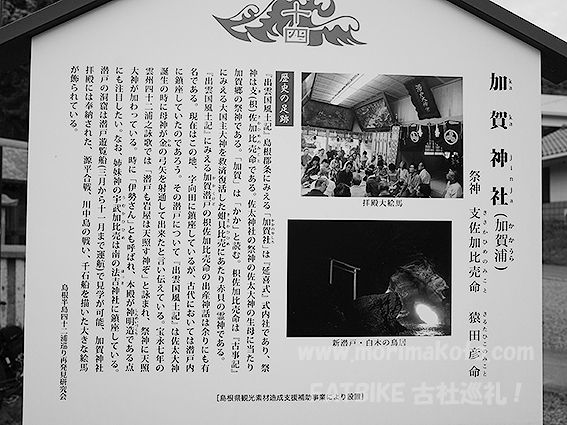 十四
加賀神社(加賀浦)
kaka jinja
かかうら
祭神 支佐加比売命 猿田彦命
きさかひめのみこと
さるたひこのみこと
拝殿大絵馬
新潜戸・白木の鳥居
歴史の足跡
『出雲国風土記』島根郡条にみえる「加賀社」は『延喜式』式内社であり、祭
神は支(枳)佐加比売命である。佐太神社の祭神の佐太大神の生母に当たり
加賀郷の祭神である。「加賀」は「かか」と読む。枳佐加比売命は『古事記』
にみえる大国主大神を救済復活した𧏛貝比売にあたり赤貝の霊神である。
『出雲国風土記』にみえる加賀潜戸の枳佐加比売命の出産神話は余りにも有
名である。現在はこの地、字向田に鎮座しているが、古代においては潜戸内
に鎮座していたのであろう。その潜戸について『出雲国風土記』は佐太大神
誕生の時に母神が金の弓矢を射通して出来たと言い伝えている。宝永七年の
雲州四十二浦之詠歌では「潜戸も岩屋は天照す神ぞ」と詠まれ、祭神に天照
大神が加わっている。時に「伊勢さん」とも呼ばれ、本殿が神明造である点
にも注目したい。なお、姉妹神の宇武加比売は南の法吉神社に鎮座している。
潜戸の洞窟は潜戸遊覧船(三月から十一月まで運航)で見学が可能。加賀神社
拝殿には奉納された、源平合戦、川中島の戦い、千石船を描いた大きな絵馬
が飾られている。
島根半島四十二浦巡り再発見研究会
[島根県観光素材造成支援補助事業により設置]
www.norimakoto.com
FATBIKE 古社巡礼!